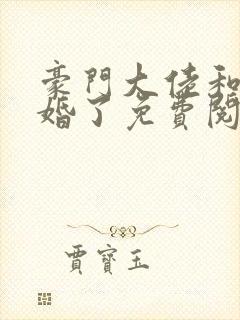 豪門大佬和
婚了免費閱
賈寶玉